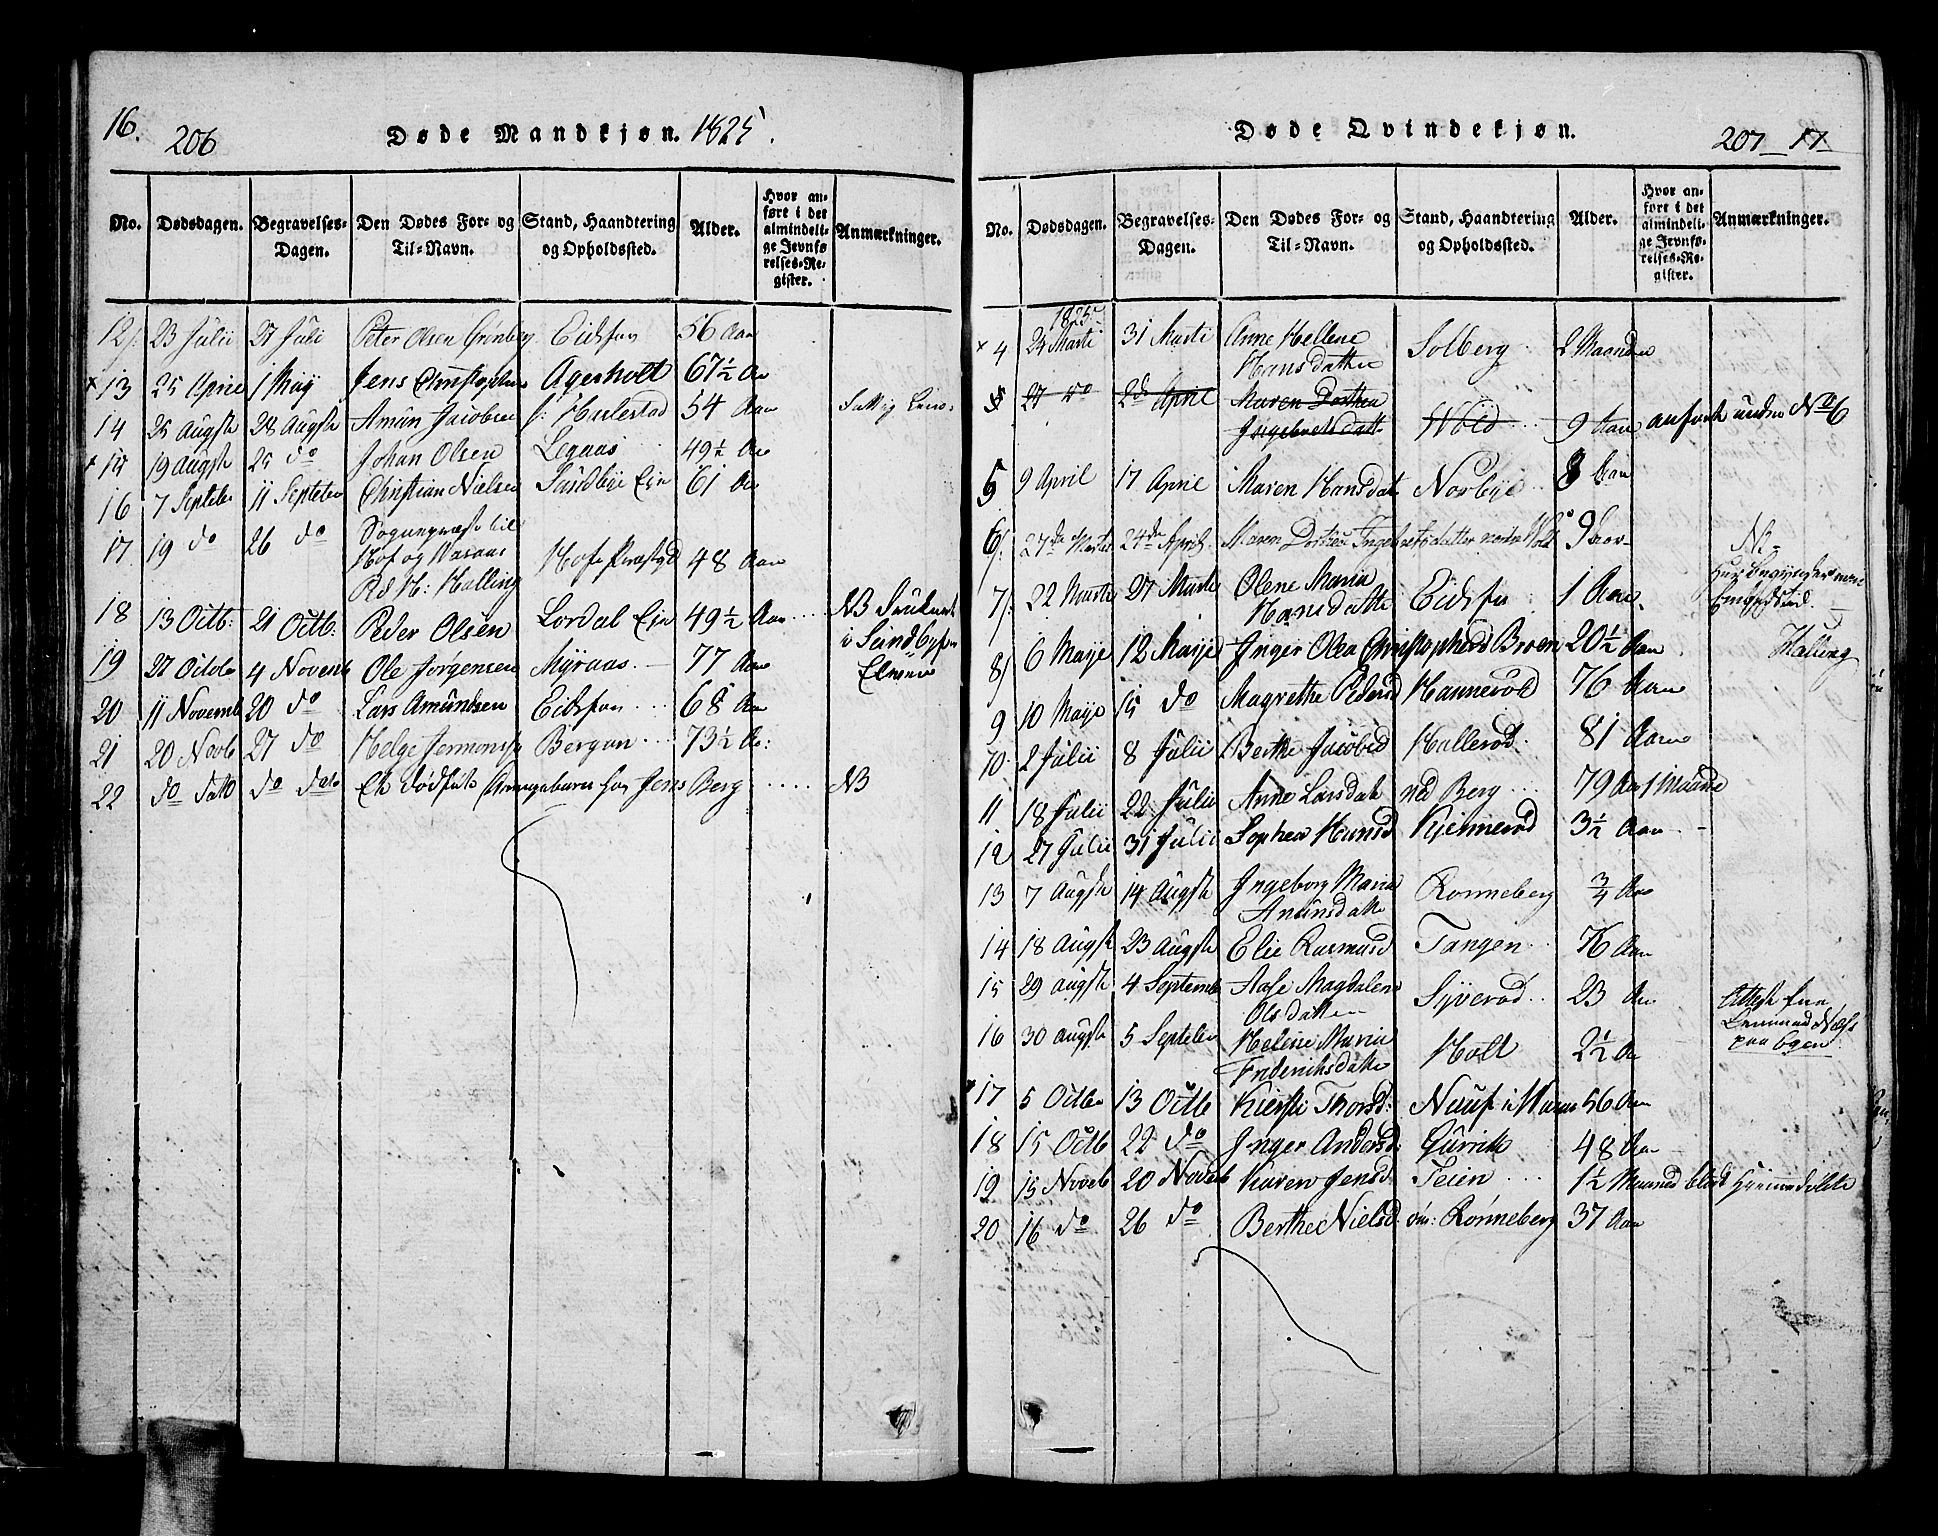 16.
206
Døde Mandkjøn. 1825.
No. Dødsdagen. Begravelses-Dagen. Den Dødes For- og Til-Navn. Stand, Haandtering og Opholdssted. Alder. Hvor anført i det almindelige Jevnførelses-Register. Anmærkninger.
12. 23 Julii 27 Juli Peter Olsen Grønberg Eidsfos 56 Aar
x 13 25 April 1 May Jens Christophersen Agerholt 67½ Aar
14 25 Augst 28 Augst Amun Jacobsen Hulestad 54 Aar
x 15 19 Augst 25 do Johan Olsen Legaas 49½ Aar
16 7 Septebr 11 Septebr Christian Nielsen Sundbye Eje 61 Aar
17. 19 do 26 do Sognepræst til
Hof og Vasaas
Rd H: Halling Hofs Præstegd 48 Aar
18 13 Octb: 21 Octb: Peder Olsen Lordal Eje 49½ Aar NB Druknet
i Sundby
Elven
19 27 Octob 4 Novemb Ole Jørgensen Myraas 77 Aar
20 11 Novemb 20 do Lars Amundsen Eidsfos 68 Aar
21 20 Novb 27 do Helge Bergan 73½ Aar:
22 do Dato do Dato Et dødfødt Drengebarn hos Jens Berg NB
Døde Qvindekjøn.
207 17
No. Dødsdagen. Begravelses-Dagen. Den Dødes For- og Til-Navn. Stand, Haandtering og Opholdssted. Alder. Hvor anført i det almindelige Jevnførelses-Register. Anmærkninger.
1825
x 4 24 Marti 31 Marti Anne Hellene
Hansdatter Solberg 2 Maaneder
5 27 do 2de April Maren Dorthea
Ingebretsdatt Wold 9 Aar anført under No 6
5 9 April 17 April Maren Hansdat Norbye 8 Aar
6. 27de Martii 24de April. Maren Dorthea Ingebretsdatter nedre Wold 9 Aar
NB
Her begynder min
Embedstid.
Halling
7. 22 Marti 27 Marti Olene Maria
Hansdatter Eidsfos 1 Aar
8) 6 Maije 12 Maije Inger Olea Christophersd Broen 20½ Aar
9 10 Maije 15 do Magrethe Pedersd Hannevold 76 Aar
10. 2 Julii 8 Julii Berthe Jacobsd Hallerød 81 Aar
11 18 Julii 22 Julii Anne Larsdatt ned Berg 79 Aar 1 Maaned
12 27 Julii 31 Julii Sophea Hansd Kjennerød 3½ Aar
13 7 Augst 14 Augst Ingeborg Maria
Amunsdatter Rønneberg ¾ Aar
14 18 Augst 23 Augst Elie Rasmusd Tangen 76 Aar
15 29 Augst 4 Septemb Aase Magdalene
Olsdatter Syverød 23 Aar Attest fra
Lensmand Næss
paa Egen
16 30 Augst 5 Septebr Helene Maria
Frideriksdatter Holt 2½ Aar
17 5 Octbr 13 Octb Kiersti Thorsd: 56 Aar
18 15 Octb 22 do Inger Andersd. Gurrik 48 Aar
19 15 Novb 20 Novemb Karen Jensd Teien 1½ Maaned blot Hjemmedøbte
20 16 do 26 do Berthe Nielsd øvr: Rønneberg 37 Aar